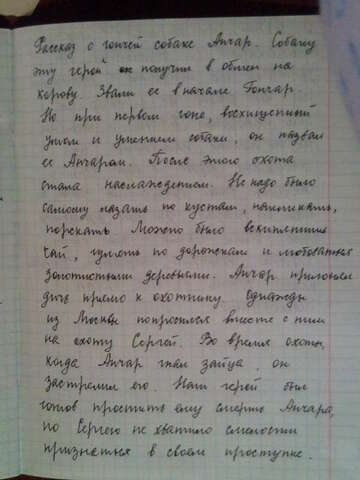 Рассказ о гончей собаке Анчар. Собаку
эту герой он получил в обмен на
корову. Звали ее вначале Гончар.
Но при первом гоне, восхищенный
умом и умением собаки, он назвал
ее Анчаром. После этого охота
стала наслаждением. Не надо было
самому лазать по кустам,
порскать. Можно было вскипятить
чай, гулять по дорожкам и любоваться
золотистыми деревьями. Анчар пригонял
дичь прямо к охотнику. Однажды
из Москвы попросился вместе с ним
на охоту Сергей. Во время охоты,
когда Анчар гнал зайца, он
застрелил его. Наш герой был
готов простить ему смерть Анчара,
но Сергею не хватило смелости
признаться в своем проступке.